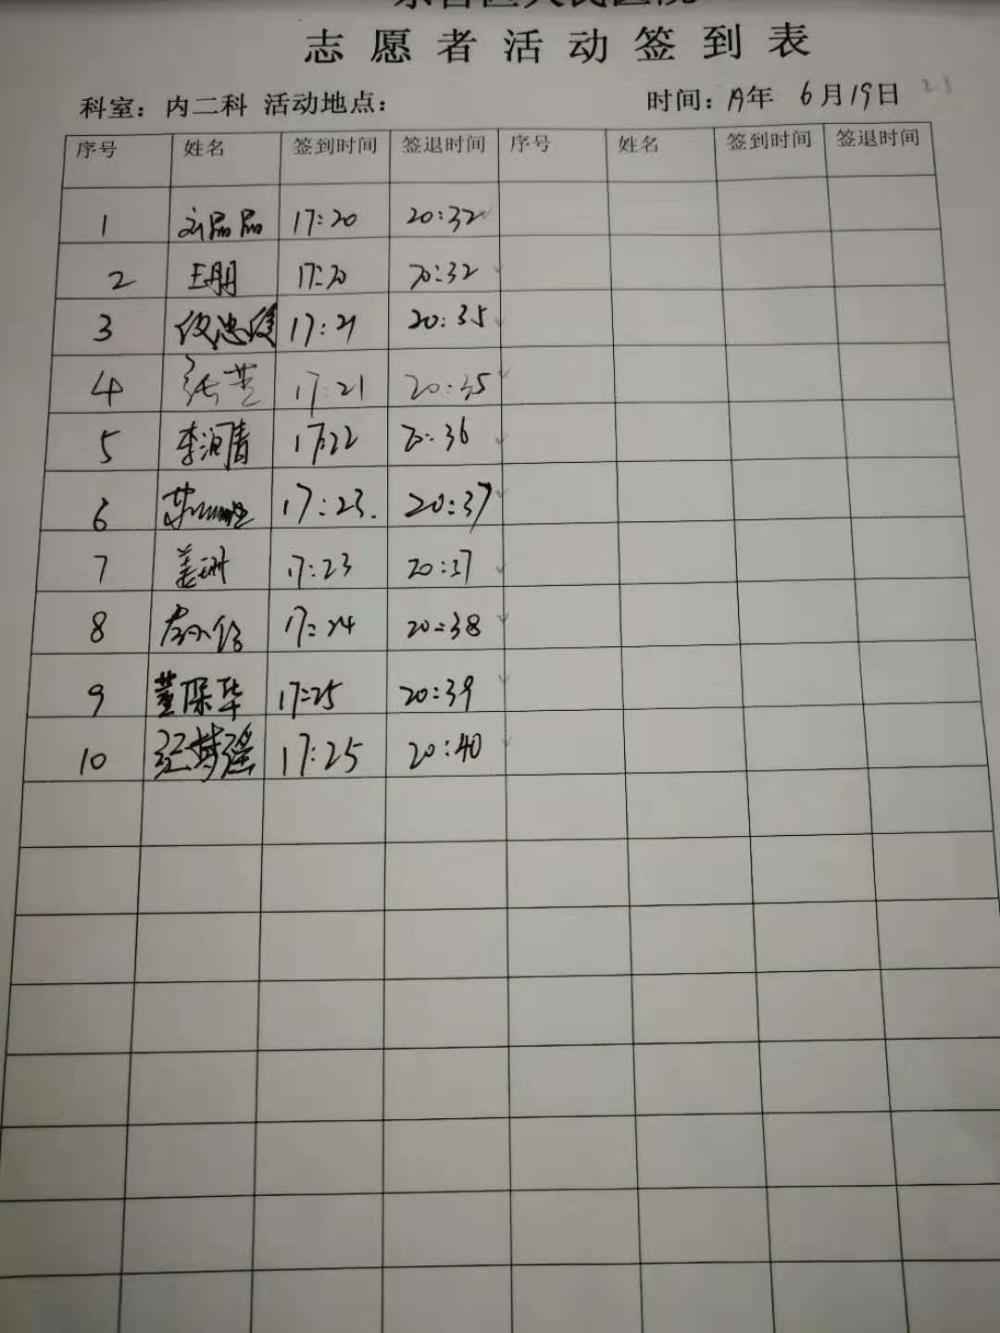 志愿者活动签到表
科室：内二科 活动地点：
时间：19年 6月19日 23
序号 姓名 签到时间 签退时间 序号 姓名 签到时间 签退时间
1 刘晶晶 17:20 20:32
2 王朋 17:20 20:32
3 17:21 20:35
4 张芸 17:21 20:35
5 李润清 17:22 20:36
6 17:23. 20:37
7 姜珊 17:23 20:37
8 17:24 20:38
9 董保华 17:25 20:39
10 梦瑶 17:25 20:40